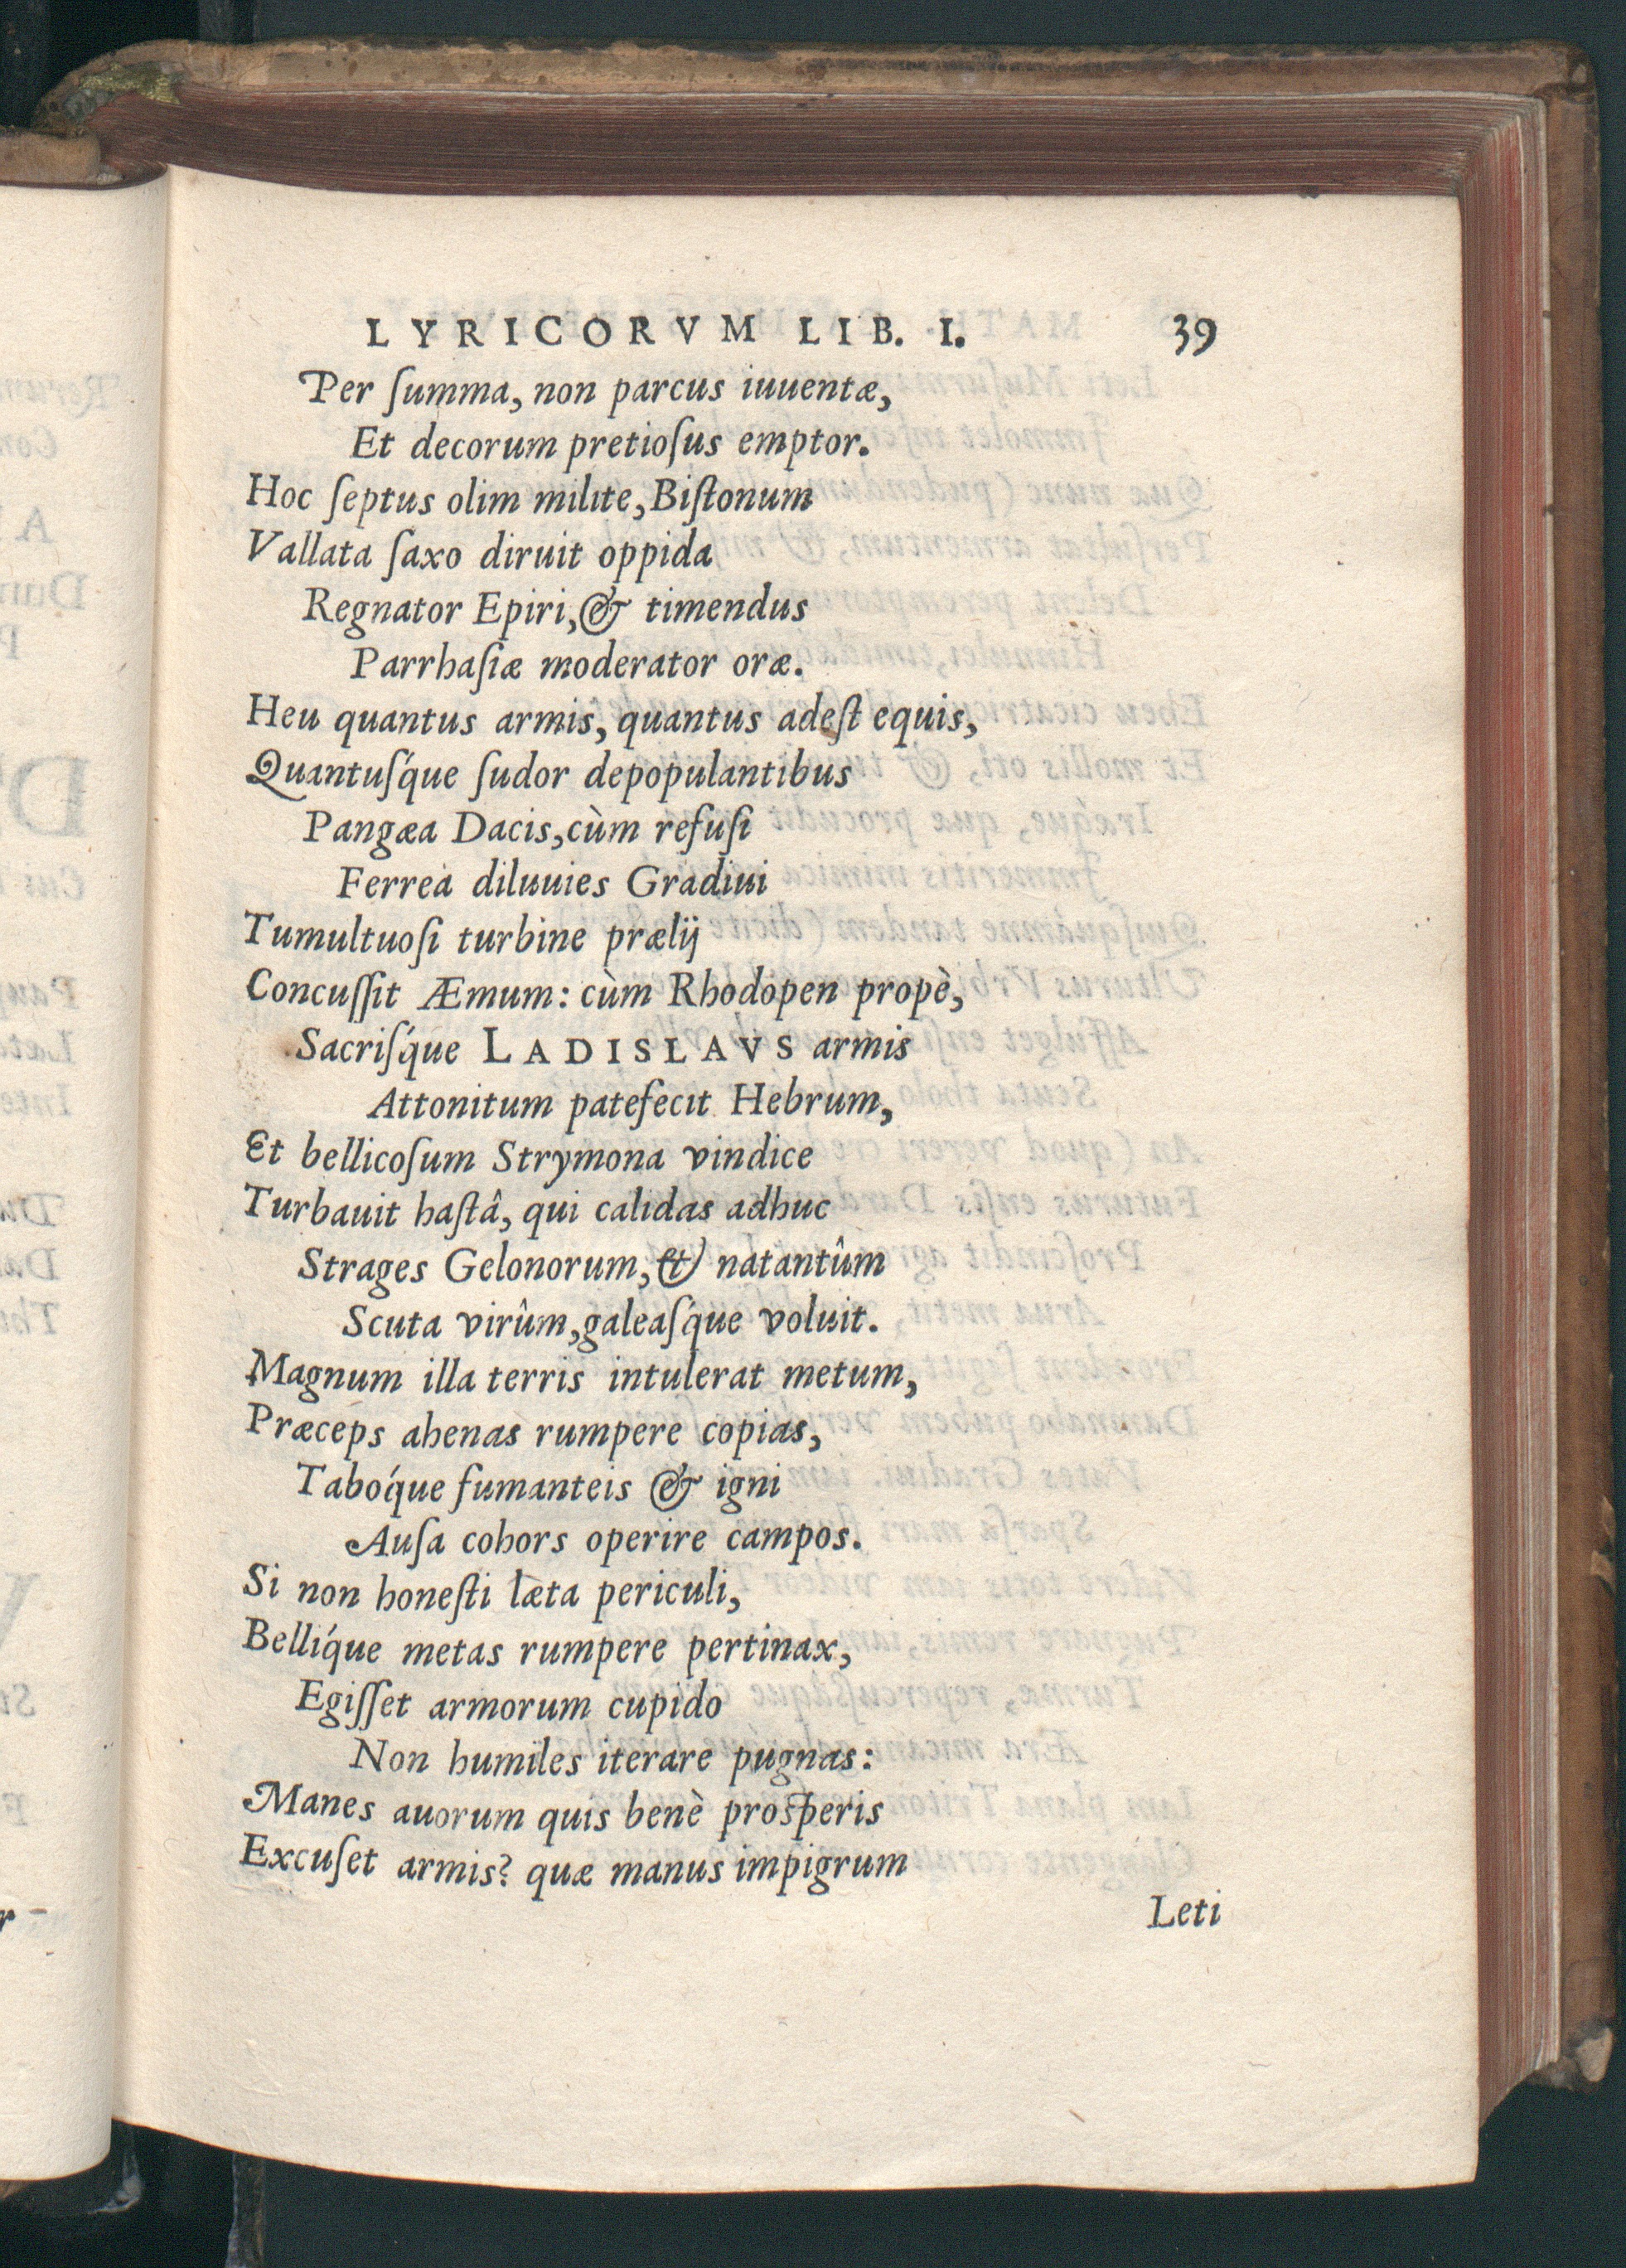 LYRICORVM LIB. I. 39
Per ſumma, non parcus iuuentæ,
Et decorum pretioſus emptor.
Hoc ſeptus olim milite, Biſtonum
Vallata ſaxo diruit oppida
Regnator Epiri, & timendus
Parrhaſiæ moderator oræ.
Heu quantus armis, quantus adeſt equis,
Quantuſq́ue ſudor depopulantibus
Pangæa Dacis, cùm refuſi
Ferrea diluuies Gradiui
Tumultuoſi turbine prælij
Concuſſit Æmum: cùm Rhodopen propè,
Sacriſq́ue LADISLAVS armis
Attonitum patefecit Hebrum,
Et bellicoſum Strymona vindice
Turbauit haſtâ, qui calidas adhuc
Strages Gelonorum, & natantûm
Scuta virûm, galeaſq́ue voluit.
Magnum illa terris intulerat metum,
Præceps ahenas rumpere copias,
Taboq́ue fumanteis & igni
Auſa cohors operire campos.
Si non honeſti læta periculi,
Belliq́ue metas rumpere pertinax,
Egiſſet armorum cupido
Non humiles iterare pugnas:
Manes auorum quis benè proſperis
Excuſet armis? quæ manus impigrum
Leti